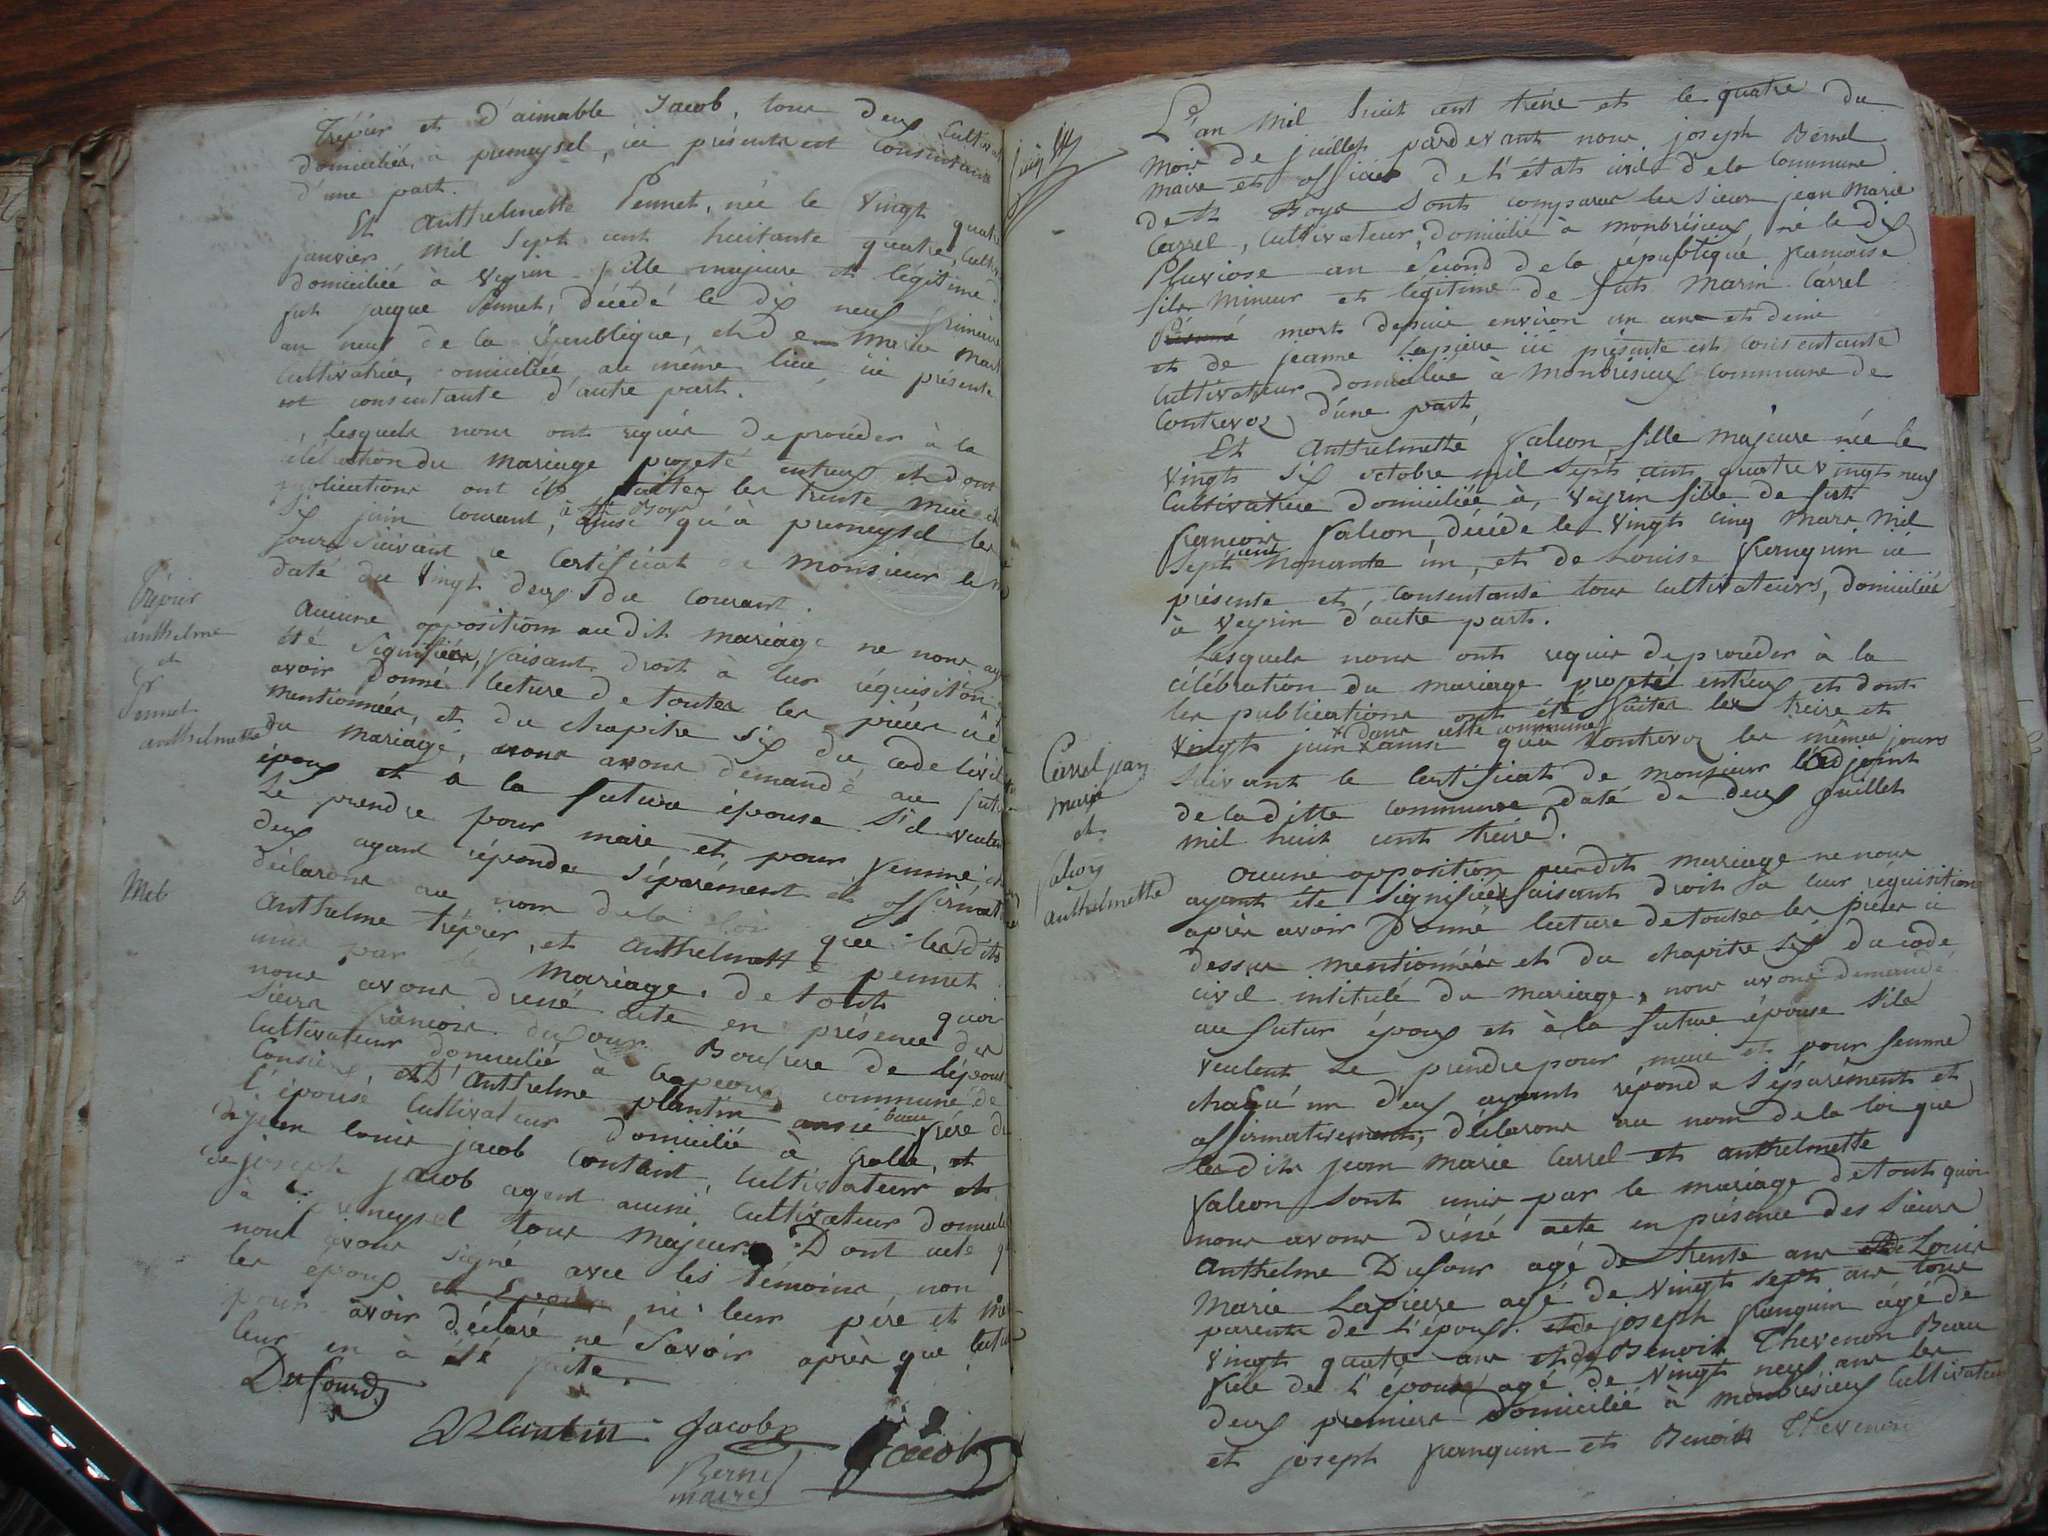 Trépier et d'aimable Jacob, tous deux cultiv
domiciliés à premeysel, ici présents et consentans
d'une part.
Et Anthelmette Pennet, née le vingt quatre
janvier mil sept cent huitante quatre, cultiv
domiciliée à veyrin fille majeure et légitime
fut jacque Pennet, décédé le dix neuf frimaire
an neuf de la république, et de Marie Mart
cultivatrice, domiciliée au même lieu ici présente
et consentante d'autre part.
Lesquels nous ont requis de procéder à la
célébration du mariage projeté entreux et dont
publications ont été faites les trente mai et
six juin courant, à St Boys ainsi qu'à premeysel les
jours suivant le certificat de monsieur le m
daté du vingt deux du courant.
aucune opposition audit mariage ne nous ay
été signifiée, faisant droit à leur réquisition
avoir donné lecture de toutes les pièces ci d
mentionnées, et du chapitre six du code civil
du mariage, nous avons demandé au futur
époux et à la future épouse s'il veulent
se prendre pour mari et pour femme ch
deux ayant répondu séparément et affirmat
déclarons au nom de la loi que lesdits
Anthelme trépier, et Anthelmette pennet
unis par le mariage. de tout quoi
nous avons dressé acte en présence des
sieurs françois dufour Boufrere de l'époux
cultivateur domicilié à commune de
Consieu, et D'Anthelme plantin aussi beau frère de
l'épouse cultivateur domicilié à et
de jean louis jacob cultivateur et
de joseph jacob agent cultivateur domicil
à premeysel tous majeurs. Dont acte q
nous avons signé avec les témoins, non
les époux et épouse, ni leur père et mè
pour avoir déclaré ne savoir après que lectu
leur en à été faite.
Dufour
Plantin Jacob Jacob
Bernel
maire
Trépier
anthelme
et
Pennet
anthelmette
L'an mil huit cent treize et le quatre du
mois de juillet pardevant nous joseph Bernel
maire et officier de l'état civil de la commune
de St Boys sont comparus les sieurs jean Marie
Carrel, cultivateur, domicilié à monbrésieux, né le dix
Pluviose an second de la république francaise
fils mineur et légitime de fut Marin Carrel
mort depuis environ un ans et demi
et de jeanne Lapierre ici présente et consentante
cultivateur domiciliée à Monbrésieux commune de
Contrevoz d'une part
Et Anthelmette falcon, fille majeure née le
vingt six octobre mil sept cent quatre vingt neuf
cultivatrice domiciliée à, veyrin fille de fut
francois falcon, décédé le vingt cinq mars mil
sept cent nonante un, et de Louise franquin ici
présente et consentante tous cultivateurs, domiciliée
à veyrin d'autre part.
Lesquels nous ont requis de procéder à la
célébration du mariage projeté entreux et dont
les publications ont été faites les treize et
vingt juin dans cette commune ainsi qu'a Contrevoz les mêmes jours
suivant le certificat de monsieur l'adjoint
de laditte commune daté du deux juillet
mil huit cent treize.
Aucune opposition audit mariage ne nous
ayant été signifiée faisant droit à leur réquisition
après avoir donné lecture de toutes les pièces ci
dessus mentionnées et du chapitre six du code
civil intitulé du mariage, nous avons demandé
au futur époux et à la future épouse s'ils
veulent se prendre pour mari et pour femme
chaqu'un d'eux ayants répondu séparément et
affirmativement, déclarons au nom de la loi que
lesdits jean marie Carrel et anthelmette
falcon sont unis par le mariage de tout quoi
nous avons dréssé acte en présence des sieurs
Anthelme Dufour agé de trente ans de Louis
Marie Lapierre agé de vingt sept ans tous
parents de l'époux. et de joseph franquin agé de
vingt quatre ans et de Benoit Thevenon Beau
frère de l'épouse agé de vingt neuf ans les
deux premiers domicilié à monbrésieux cultivateurs
et joseph franquin et Benoit Thevenon
Carrel jean
marie
et
falcon
anthelmette